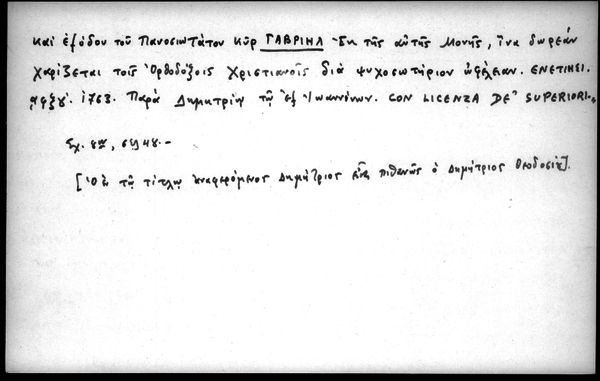 καὶ ἐξόδου τοῦ Πανοσιωτάτου κὺρ ΓΑΒΡΙΗΛ Ἐκ τῆς αὐτῆς Μονῆς, ἵνα δωρεὰν
χαρίζεται τοῖς Ὀρθοδόξοις Χριστιανοῖς διὰ ψυχοσωτήριον ὠφέλειαν. ΕΝΕΤΙΗΣΙ.
͵αψξγ'. 1763. Παρὰ Δημητρίῳ τῷ ἐξ Ἰωαννίνων. CON LICENZA DE' SUPERIORI.
Σχ. 8ον, σελ 48.-
[Ὁ ἐν τῷ τίτλῳ ἀναφερόμενος Δημήτριος εἶναι πιθανῶς ὁ Δημήτριος Θεοδοσίου].